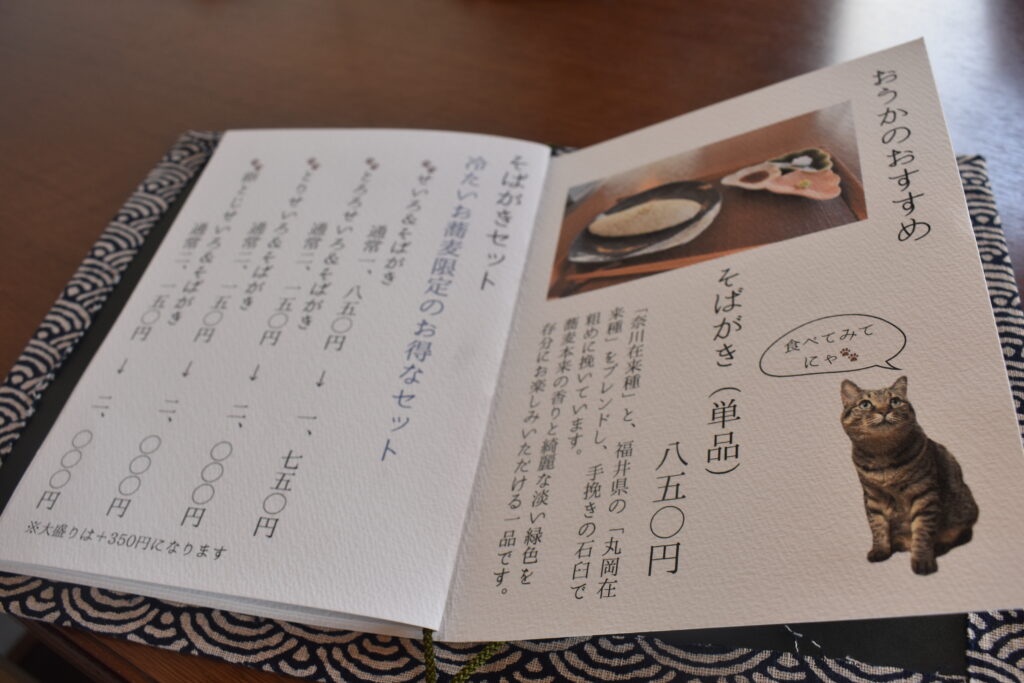 おうかのおすすめ
食べてみて
にゃ
そばがき（単品）
八五〇円
「奈川在来種」と、福井県の「丸岡在
来種」をブレンドし、手挽きの石臼で
粗めに挽いています。
蕎麦本来の香りと綺麗な淡い緑色を
存分にお楽しみいただける一品です。
そばがきセット
冷たいお蕎麦限定のお得なセット
せいろ&そばがき
通常一、八五〇円 → 一、七五〇円
とろろせいろ&そばがき
通常二、一五〇円 → 二、〇〇〇円
とりせいろ&そばがき
通常二、一五〇円 → 二、〇〇〇円
とじせいろ&そばがき
通常二、一五〇円 → 二、〇〇〇円
※大盛りは＋350円になります